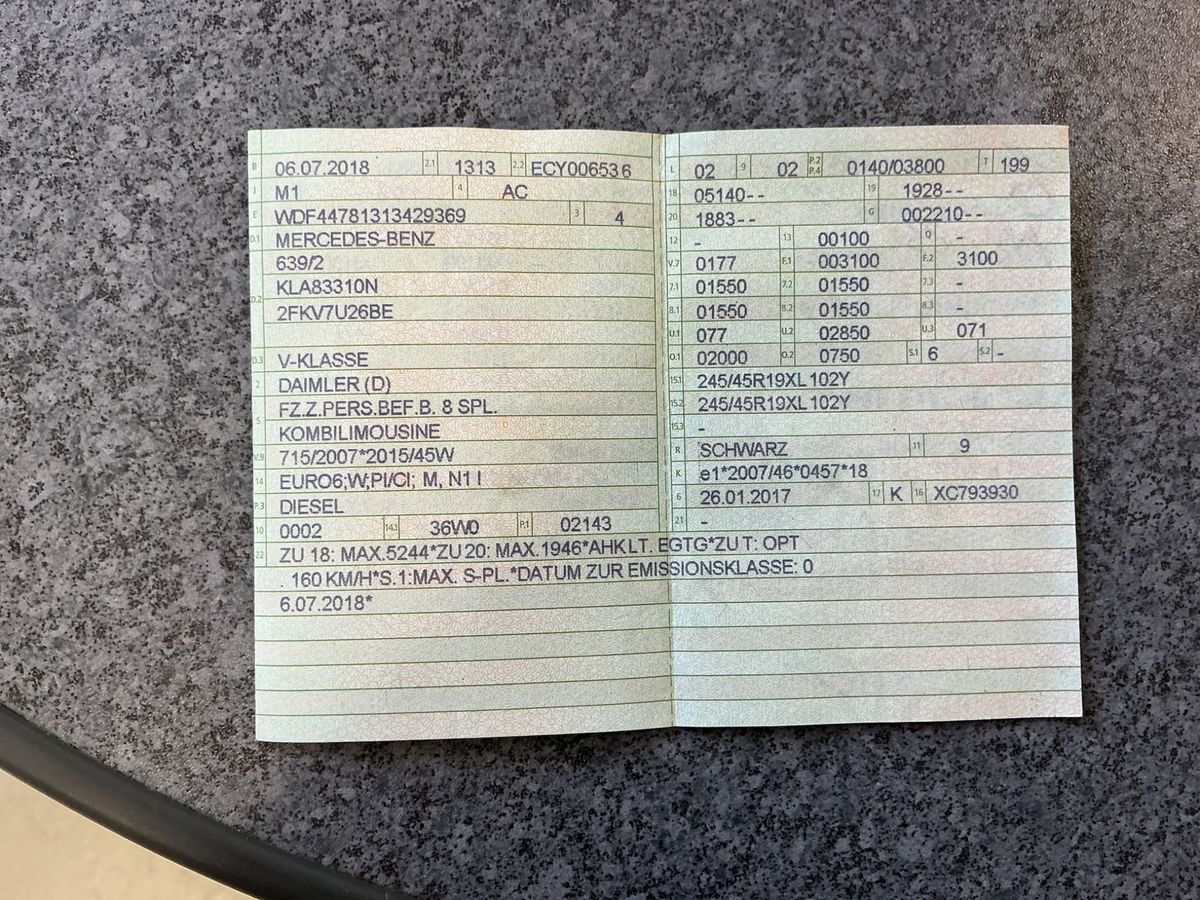 B 06.07.2018 2.1 1313 2.2 ECY006536
J M1 4 AC
E WDF44781313429369 3 4
D.1 MERCEDES-BENZ
639/2
D.2 KLA83310N
2FKV7U26BE
D.3 V-KLASSE
2 DAIMLER (D)
5 FZ.Z.PERS.BEF.B. 8 SPL.
KOMBILIMOUSINE
V.9 715/2007*2015/45W
14 EURO6;W;PI/CI; M, N1 I
P.3 DIESEL
10 0002 14.1 36W0 P.1 02143
L 02 9 02 P.2 P.4 0140/03800 T 199
18 05140-- 19 1928--
20 1883-- G 002210--
12 - 13 00100 Q -
V.7 0177 F.1 003100 F.2 3100
7.1 01550 7.2 01550 7.3 -
8.1 01550 8.2 01550 8.3 -
U.1 077 U.2 02850 U.3 071
O.1 02000 O.2 0750 S.1 6 S.2 -
15.1 245/45R19XL 102Y
15.2 245/45R19XL 102Y
15.3 -
R SCHWARZ 11 9
K e1*2007/46*0457*18
6 26.01.2017 17 K 16 XC793930
21 -
22 ZU 18: MAX.5244*ZU 20: MAX.1946*AHK LT. EGTG*ZU T: OPT
. 160 KM/H*S.1:MAX. S-PL.*DATUM ZUR EMISSIONSKLASSE: 0
6.07.2018*